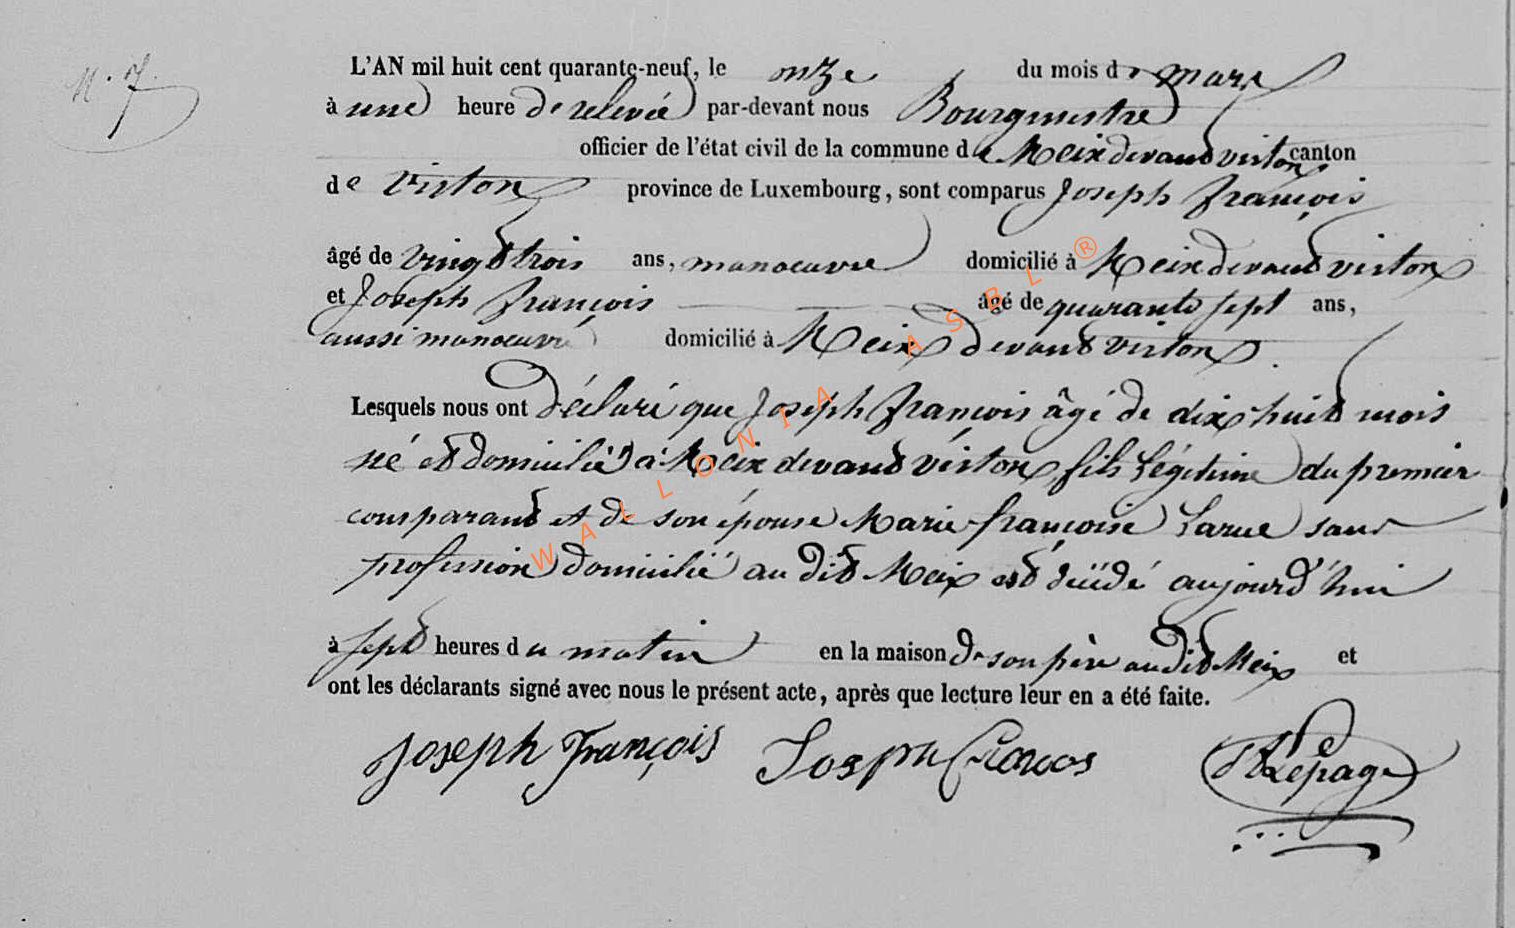 N. 7.
L'AN mil huit cent quarante-neuf, le onze du mois de mars
à une heure de relevée par-devant nous Bourgmestre
officier de l'état civil de la commune de Meix devant virton canton
de Virton province de Luxembourg, sont comparus Joseph françois
âgé de vingt trois ans, manoeuvre domicilié à Meix devant virton
et Joseph françois âgé de quarante sept ans,
aussi manoeuvre domicilié à Meix devant virton.
Lesquels nous ont déclaré que Joseph françois âgé de dix huit mois
né et domicilié à Meix devant virton, fils légitime du premier
comparant et de son épouse Marie françoise Larue sans
profession domicilié au dit Meix est décédé aujourd'hui
à sept heures du matin en la maison de son père au dit Meix et
ont les déclarants signé avec nous le présent acte, après que lecture leur en a été faite.
Joseph François Joseph Lepage
WALLONIA ASBL ®